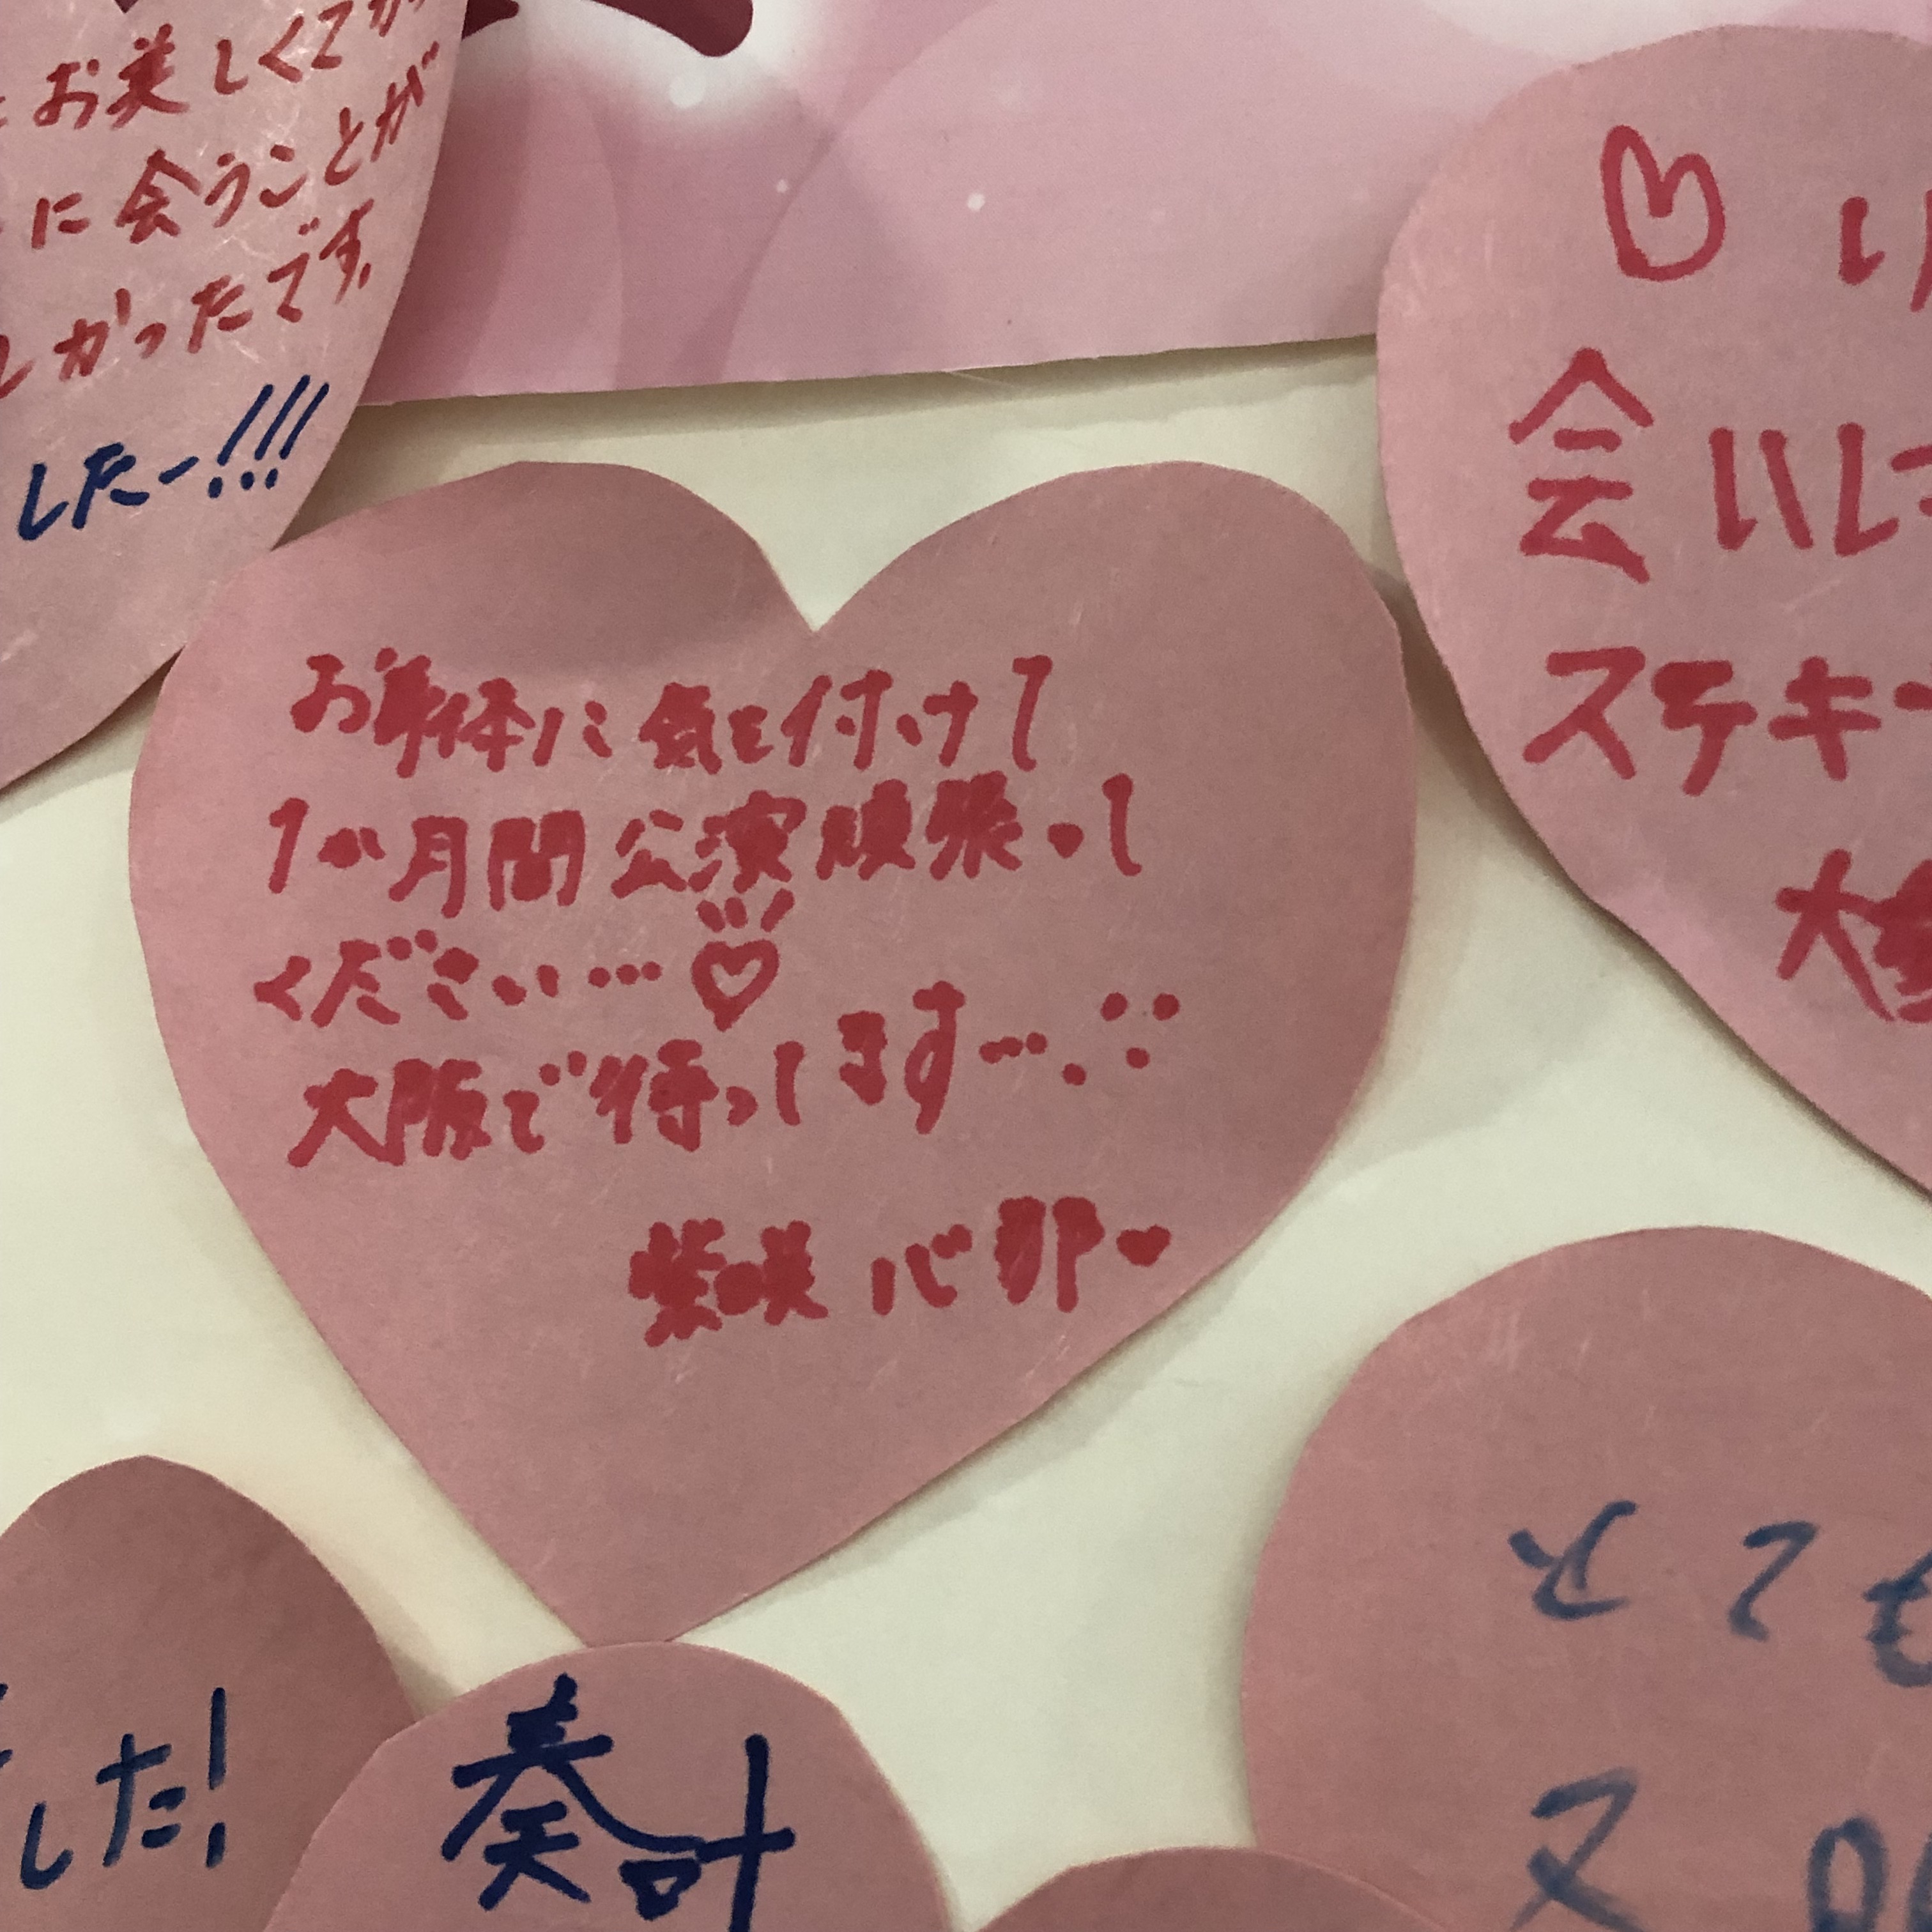 お美しくて
に会うことが
しかったです。
したー!!!
お身体に気を付けて
1か月間公演頑張って
ください…♡
大阪で待ってます…
紫咲心那♥
♡
会いし
ステキ
大
した!
奏叶
とても
ス